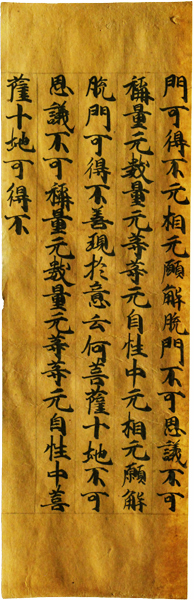 門可得不无相无願解脫門不可思議不可
稱量无數量无等等无自性中无相无願解
脫門可得不善現於意云何菩薩十地不可
思議不可稱量无數量无等等无自性中菩
薩十地可得不